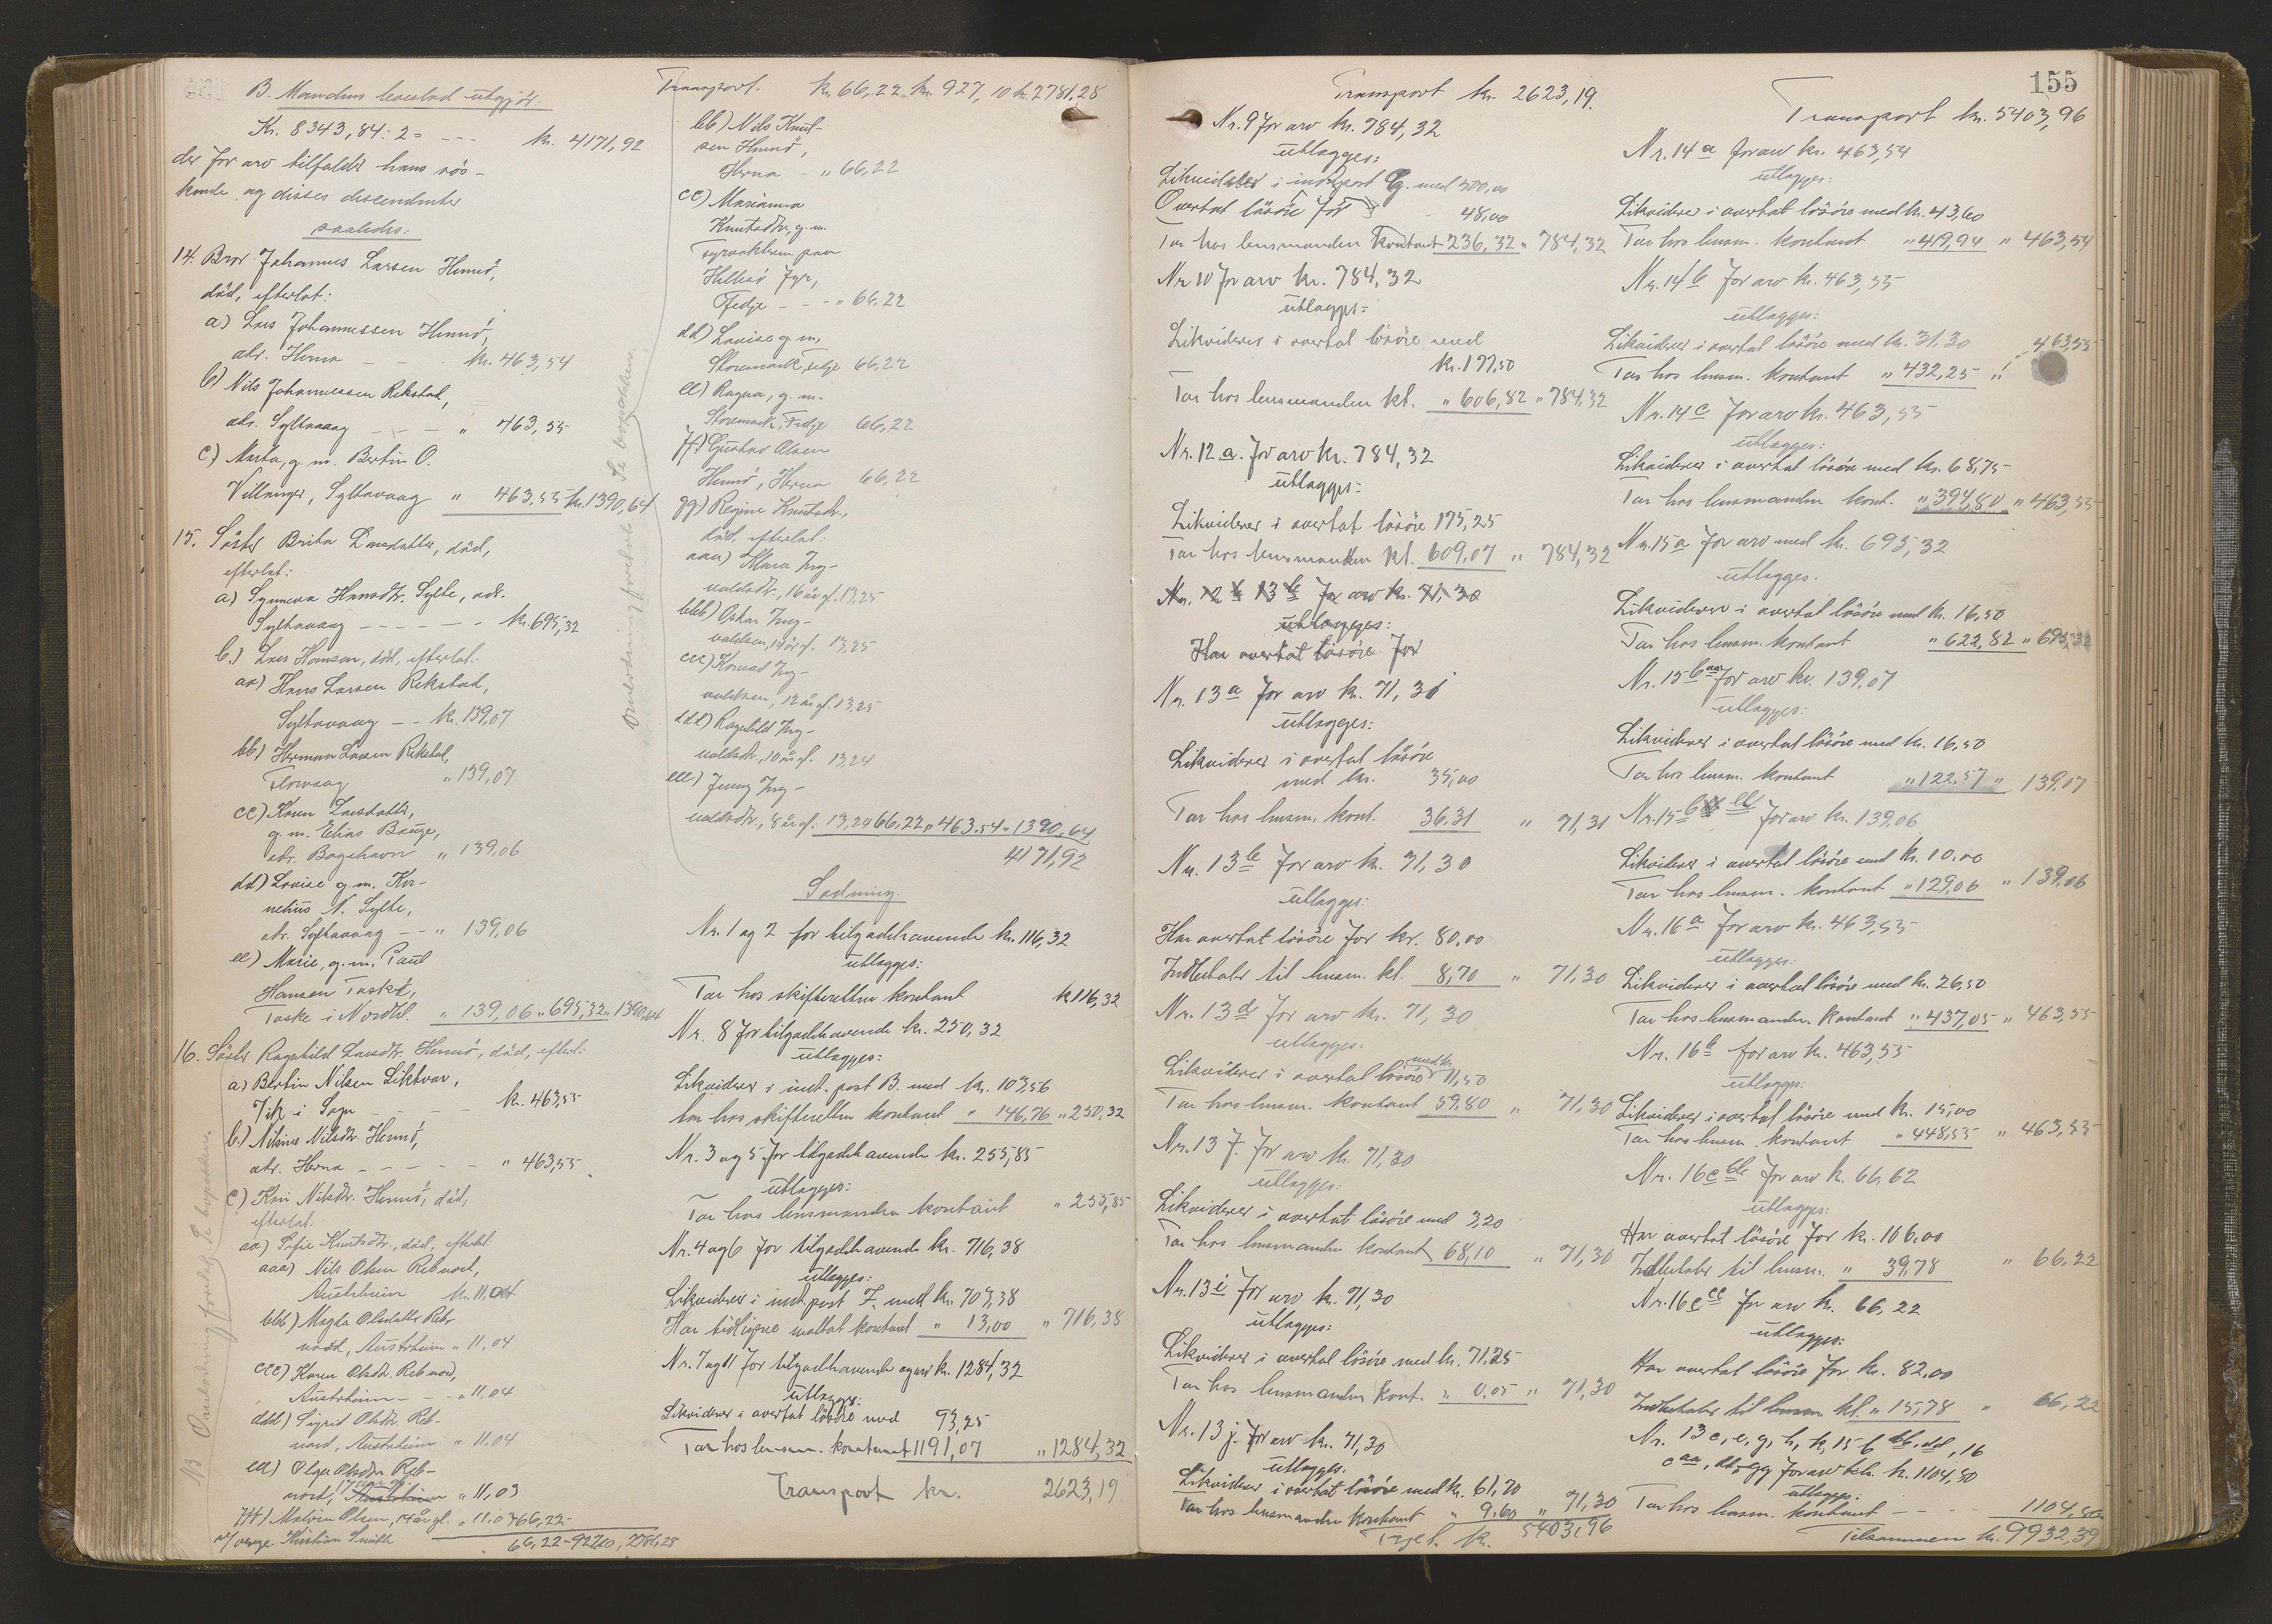 B. Mandens leveslod utgjör:
Kr. 8343,84:2 = - - - kr. 4171,92
der for arv tilfalder hans søs-
kende og disses descendenter
saaledes:
14. Bror Johannes Larsen Hennö,
död, efterlot:
a) Lars Johannessen Hennö,
adr. Herna - - - kr. 463,54
b) Nils Johannessen Rikstad,
adr. Syltavaag - - - " 463,55
c) Marta, g. m. Bertin O.
Villanger, Syltavaag " 463,55 kr. 1390,64
15. Söster Brita Larsdatter, död,
efterlot:
a) Synneva Hansdtr. Sylte, adr.
Syltavaag - - - - - kr. 695,32
b.) Lars Hansen, död, efterlot:
aa) Hans Larsen Rikstad,
Syltavaag - - kr. 139,07
bb) Herman Larsen Rikstad,
Florvaag " 139,07
cc) Karen Larsdatter,
g. m. Elias Bauge,
adr. Bogehavn " 139,06
dd) Lovise g. m. Kor-
nelius N. Sylte,
adr. Syltavaag - - " 139,06
ee) Marie, g. m. Paul
Hansen Taske,
Taske i Nordhl. " 139,06 " 695,32 " 1390,64
16. Söster Ragnhild Larsdtr. Hennö, död, efterl:
a) Bertin Nilsen Liktvor,
Vik i Sogn - - - kr. 463,55
b.) Nikine Nilsdtr. Hennö,
adr. Herna - - - - - " 463,55
c) Kari Nilsdtr. Hennö, död,
efterlot:
aa) Sofie Knutsdtr., död, efterlot
aaa) Nils Olsen Rebnord,
Austrheim kr. 11,04
bbb) Magda Olsdatter Reb-
nord, Austrheim " 11,04
ccc) Karen Olsdtr. Rebnord,
Austrheim - - - " 11,04
ddd) Sigrid Olsdtr. Reb-
nord, Austrheim " 11,04
eee) Olga Olsdtr. Reb-
nord, Austrheim " 11,03
fff) Malvin Olsen, 14 år gl. " 11,03 66,22
v/ verge Kristian Smith 66,22 - 927,10, 2781,28
NB Omlodning foretat. Se bopakken.
Transport. kr. 66,22 kr. 927,10 kr. 2781,28
bb) Nils Knut-
sen Hennö,
Herna - " 66,22
cc) Marianna
Knutsdtr, g. m.
Fyrvokteren paa
Hellesö Fyr,
Fedje - - - " 66,22
dd) Lovise g. m.
Storemark, Fedje 66,22
ee) Ragna, g. m.
Storemark, Fedje 66,22
ff) Gustav Olsen
Hennö, Herna 66,22
gg) Regine Knutsdtr.,
död, efterlot:
aaa) Mara Ing-
valdsdtr., 16 år gl. 13,25
bbb) Oskar Ing-
valdsen, 14 år gl. 13,25
ccc) Konrad Ing-
valdsen, 12 år gl. 13,25
ddd) Ragnhild Ing-
valdsdtr., 10 år gl. 13,24
eee) Jenny Ing-
valdsdtr., 8 år gl. 13,24 66,22 " 463,54 " 1390,64
4171,92
Omlodning foretat. Se bopakken.
Lodning.
Nr. 1 og 2 for tilgodehavende kr. 116,32
utlægges:
Tar hos skifteretten kontant kr. 116,32
Nr. 8 for tilgodehavende kr. 250,32
utlægges:
Likviderer i indt. post B. med kr. 103,56
tar hos skifteretten kontant " 146,76 " 250,32
Nr. 3 og 5 for tilgodehavende kr. 255,85
utlægges:
Tar hos lensmanden kontant " 255,85
Nr. 4 og 6 for tilgodehavende kr. 716,38
utlægges:
Likviderer i indt. post F. med kr. 703,38
Har tidligere mottat kontant " 13,00 " 716,38
Nr. 7 og 11 for tilgodehavende og arv kr. 1284,32
utlægges:
Likviderer i overtat lösöre med 93,25
Tar hos lensm. kontant 1191,07 " 1284,32
Transport kr. 2623,19
Transport kr. 2623,19.
Nr. 9 for arv kr. 784,32
utlægges:
Likviderer i indt. post G. med 500,00
Overtat lösöre for 48,00
Tar hos lensmanden kontant 236,32 " 784,32
Nr. 10 for arv kr. 784,32
utlægges:
Likviderer i overtat lösöre med
kr. 177,50
Tar hos lensmanden kt. " 606,82 " 784,32
Nr. 12 a. for arv kr. 784,32
utlægges:
Likviderer i overtat lösöre 175,25
Tar hos lensmanden kt. 609,07 " 784,32
Nr. 12 b 13 b for arv kr. 71,30
utlægges:
Har overtat lösöre for
Nr. 13 a for arv kr. 71,31
utlægges:
Likviderer i overtat lösöre
med kr. 35,00
Tar hos lensm. kont. 36,31 " 71,31
Nr. 13 b for arv kr. 71,30
utlægges:
Har overtat lösöre for kr. 80,00
Indbetaler til lensm. kt. 8,70 " 71,30
Nr. 13 d for arv kr. 71,30
utlægges:
Likviderer i overtat lösöre med kr. 11,50
Tar hos lensm. kontant 59,80 " 71,30
Nr. 13 f. for arv kr. 71,30
utlægges:
Likviderer i overtat lösöre med 3,20
Tar hos lensmanden kontant 68,10 " 71,30
Nr. 13 i for arv kr. 71,30
utlægges:
Likviderer i overtat lösöre med kr. 71,25
Tar hos lensmanden kont. " 0,05 " 71,30
Nr. 13 j. for arv kr. 71,30
utlægges:
Likviderer i overtat lösöre med kr. 61,70
Tar hos lensmanden kontant " 9,60 " 71,30
Trspt. kr. 5403,96
155
Transport kr. 5403,96
Nr. 14 a for arv kr. 463,54
utlægges:
Likviderer i overtat lösöre med kr. 43,60
Tar hos lensm. kontant " 419,94 " 463,54
Nr. 14 b for arv kr. 463,55
utlægges:
Likviderer i overtat lösöre med kr. 31,30
Tar hos lensm. kontant " 432,25 " 463,55
Nr. 14 c for arv kr. 463,55
utlægges:
Likviderer i overtat lösöre med kr. 68,75
Tar hos lensmanden kont. " 394,80 " 463,55
Nr. 15 a for arv med kr. 695,32
utlægges.
Likviderer i overtat lösöre med kr. 16,50
Tar hos lensm. kontant " 622,82 " 695,32
Nr. 15 b aa for arv kr. 139,07
utlægges:
Likviderer i overtat lösöre med kr. 16,50
Tar hos lensm. kontant " 122,57 " 139,07
Nr. 15 b ee for arv kr. 139,06
Likviderer i overtat lösöre med kr. 10,00
Tar hos lensm. kontant " 129,06 " 139,06
Nr. 16 a for arv kr. 463,55
utlægges:
Likviderer i overtat lösöre med kr. 26,50
Tar hos lensmanden kontant " 437,05 " 463,55
Nr. 16 b for arv kr. 463,55
utlægges:
Likviderer i overtat lösöre med kr. 15,00
Tar hos lensm. kontant " 448,55 " 463,55
Nr. 16 c bb for arv kr. 66,62
utlægges:
Har overtat lösöre for kr. 106,00
Indbetaler til lensm. " 39,78 " 66,22
Nr. 16 c cc for arv kr. 66,22
utlægges:
Har overtat lösöre for kr. 82,00
Indbetaler til lensm kt. " 15,78 " 66,22
Nr. 13 c, e, g, h, k, 15 b bb, dd, 16
c aa, dd-gg for arv tils. kr. 1104,80
utlægges:
Tar hos lensm. kontant - - 1104,80
Tilsammen kr. 9932,39